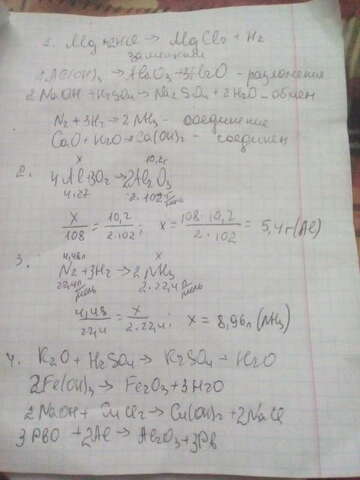 1. Mg + 2HCl → MgCl2 + H2
замещения
2Al(OH)3 → Al2O3 + 3H2O - разложения
2NaOH + H2SO4 → Na2SO4 + 2H2O - обмен
N2 + 3H2 → 2NH3 - соединение
CaO + H2O → Ca(OH)2 - соединен
x 10,2г
2. 4Al + 3O2 → 2Al2O3
4·27 2·102
x/108 = 10,2/2·102 ; x = 108·10,2/2·102 = 5,4г (Al)
3. 4,48л x
N2 + 3H2 → 2NH3
22,4 л/моль 2·22,4 л/моль
4,48/22,4 = x/2·22,4 ; x = 8,96л (NH3)
4. K2O + H2SO4 → K2SO4 + H2O
2Fe(OH)3 → Fe2O3 + 3H2O
2NaOH + CuCl2 → Cu(OH)2 + 2NaCl
3PBO + 2Al → Al2O3 + 3Pb